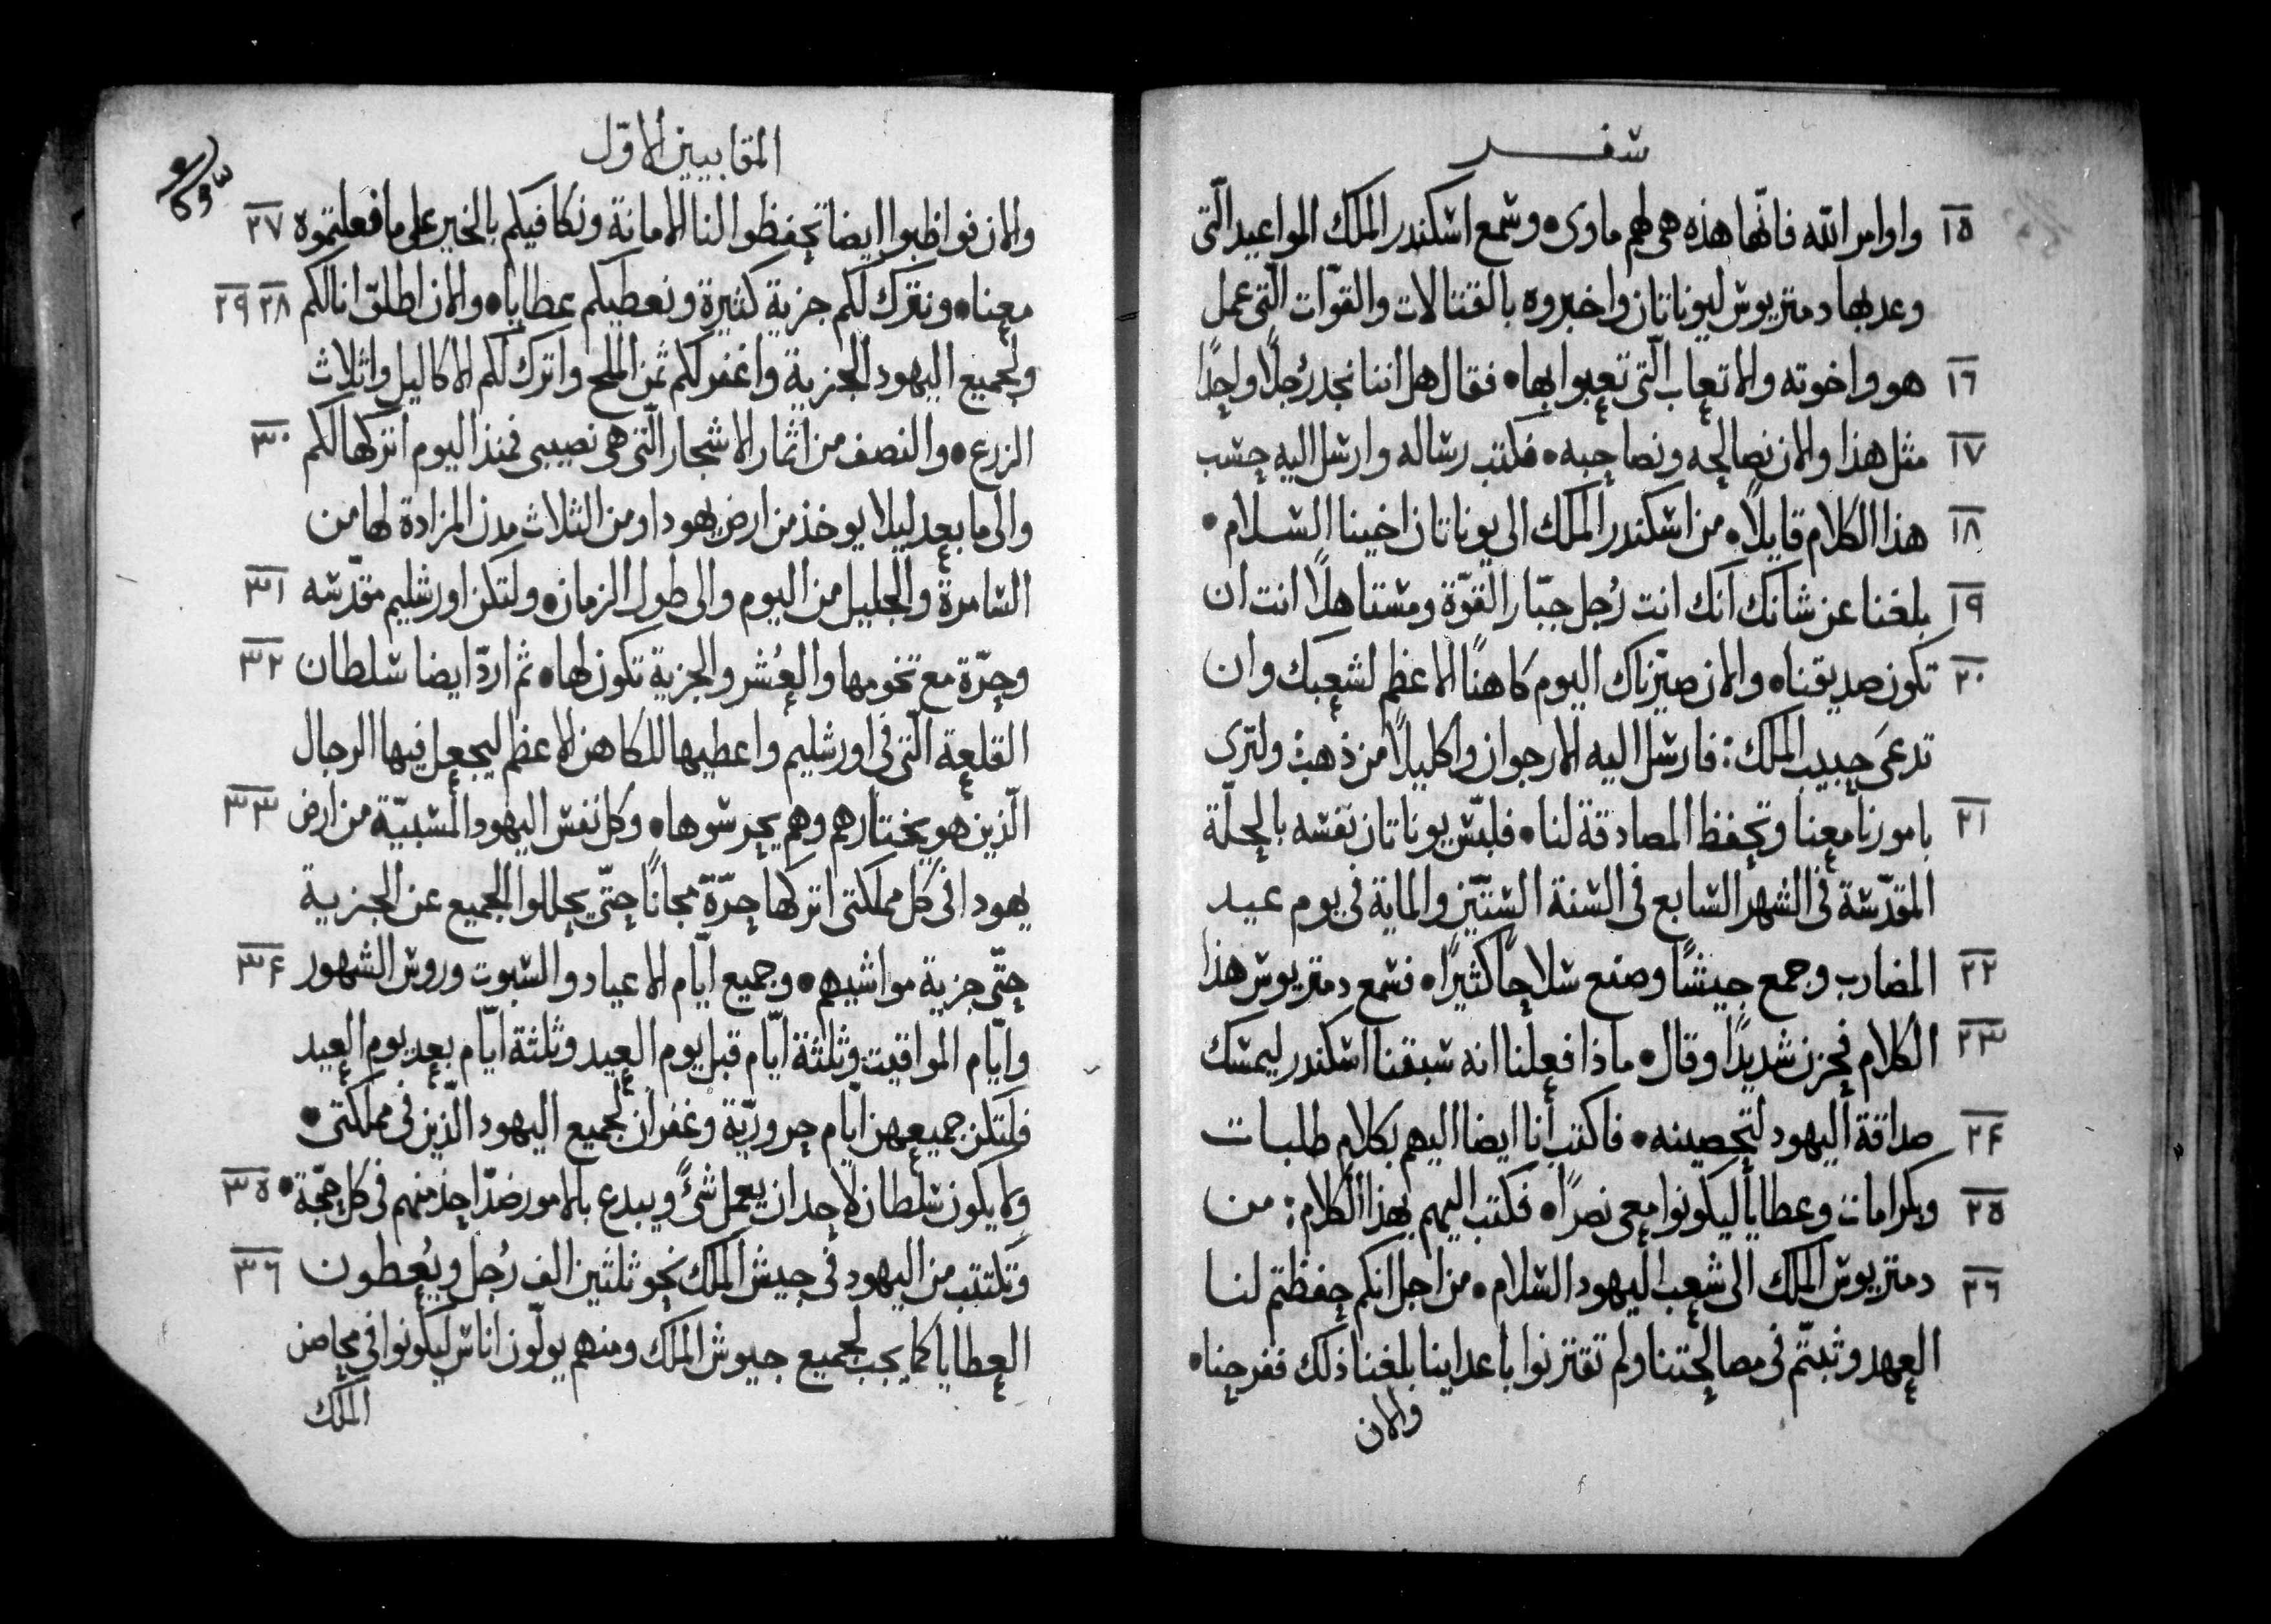 سفر
١٥ واوامر الله فانّها هذه هى لهم ماوى • وسمع اسكندر الملك المواعيد الّتى
وعد بها دمتريوس ليوناتان واخبروه بالقتالات والقوّات الّتى عمل
١٦ هو واخوته والاتعاب الّتى تعبوا بها • فقال هل اننا نجد رُجلًا واحدًا
١٧ مثل هذا والان نصالحه ونصاحبه • فكتب رساله وارسل اليه حسب
١٨ هذا الكلام قايلًا • من اسكندر الملك الى يوناتان اخينا السلام •
١٩ بلغنا عن شانك انك انت رُجل جبّار القوّة ومستاهلًا انت ان
٢٠ تكون صديقنا • والان صيّرناك اليوم كاهنًا الاعظم لشعبك وان
تدعىَ حبيب الملك : فارسل اليه الارجوان واكليلًا من ذهب : ولترى
٢١ بامورنا معنا وتحفظ المصادقة لنا • فلبّس يوناتان نفسه بالحلّة
المقدّسة فى الشهر السابع فى السنة الستّين والماية فى يوم عيد
٢٢ المضارب وجمع جيشًا وصنع سلاحًا كثيرًا • فسمع دمتريوس هذا
٢٣ الكلام فحزن شديدًا وقال • ماذا فعلنا انه سبقنا اسكندر ليمسك
٢۴ صداقة اليهود لتحصينه • فاكتب انا ايضا اليهم بكلام طلبات
٢٥ وبكرامات وعطايا ليكونوا معى نصرًا • فكتب اليهم بهذا الكلام : من
٢٦ دمتريوس الملك الى شعب اليهود السلام • من اجل انكم حفظتم لنا
العهد وثبتّم فى مصالحتنا ولم تقترنوا باعداينا بلغنا ذلك ففرحنا •
والان
المقابيين الاوّل
والان فواظبوا ايضا تحفظوا لنا الامانة ونكافيكم بالخير على ما فعلتموه ٢٧
معنا • ونترك لكم جزية كثيرة ونعطيكم عطايا • والان اطلق انا لكم ٢٨ ٢٩
ولجميع اليهود الجزية واغفر لكم ثمن الملح واترك لكم الاكاليل واثلاث
الزرع • والنصف من اثمار الاشجار الّتى هى نصيبى فمنذ اليوم اتركها لكم ٣٠
والى ما بعد ليلا يوخذ من ارض يهودا ومن الثلاث مدن المزادة لها من
السامرة والجليل من اليوم والى طول الزمان • ولتكن اورشليم مقدّسه ٣١
وحرّة مع تخومها والعُشر والجزية تكون لها • ثم اردّ ايضا سلطان ٣٢
القلعة الّتى فى اورشليم واعطيها للكاهن الاعظم ليجعل فيها الرجال
الّذين هو يختارهم وهم يحرسوها • وكل نفس اليهود المسبيّة من ارض ٣٣
يهودا فى كل مملكتى اتركها حرّة مجانًا حتّى يحللوا الجميع عن الجزية
حتّى جزية مواشيهم • وجميع ايّام الاعياد والسبوت وروس الشهور ٣۴
وايّام المواقيت وثلثة ايّام قبل يوم العيد وثلثة ايّام بعد يوم العيد
فلتكن جميعهن ايّام حروريّة وغفران لجميع اليهود الّذين فى مملكتى •
ولا يكون سلطان لاحد ان يعمل شىً ويبدع بالامور ضدّ احد منهم فى كل حجّة • ٣٥
وتكتتب من اليهود فى جيش الملك نحو ثلثين الف رُجل ويُعطون ٣٦
العطايا كما يجب لجميع جيوش الملك ومنهم يولّون اناس ليكونوا فى محاصن
الملك